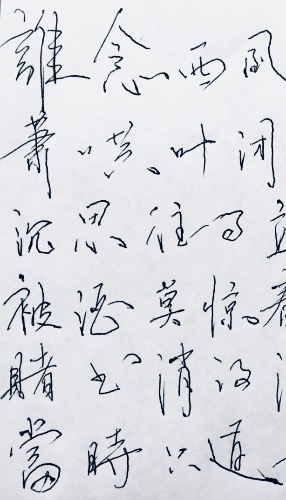 誰念西風
蕭々黄叶闭
沉思往事立
被酒莫惊春
賭书消得
當時只道